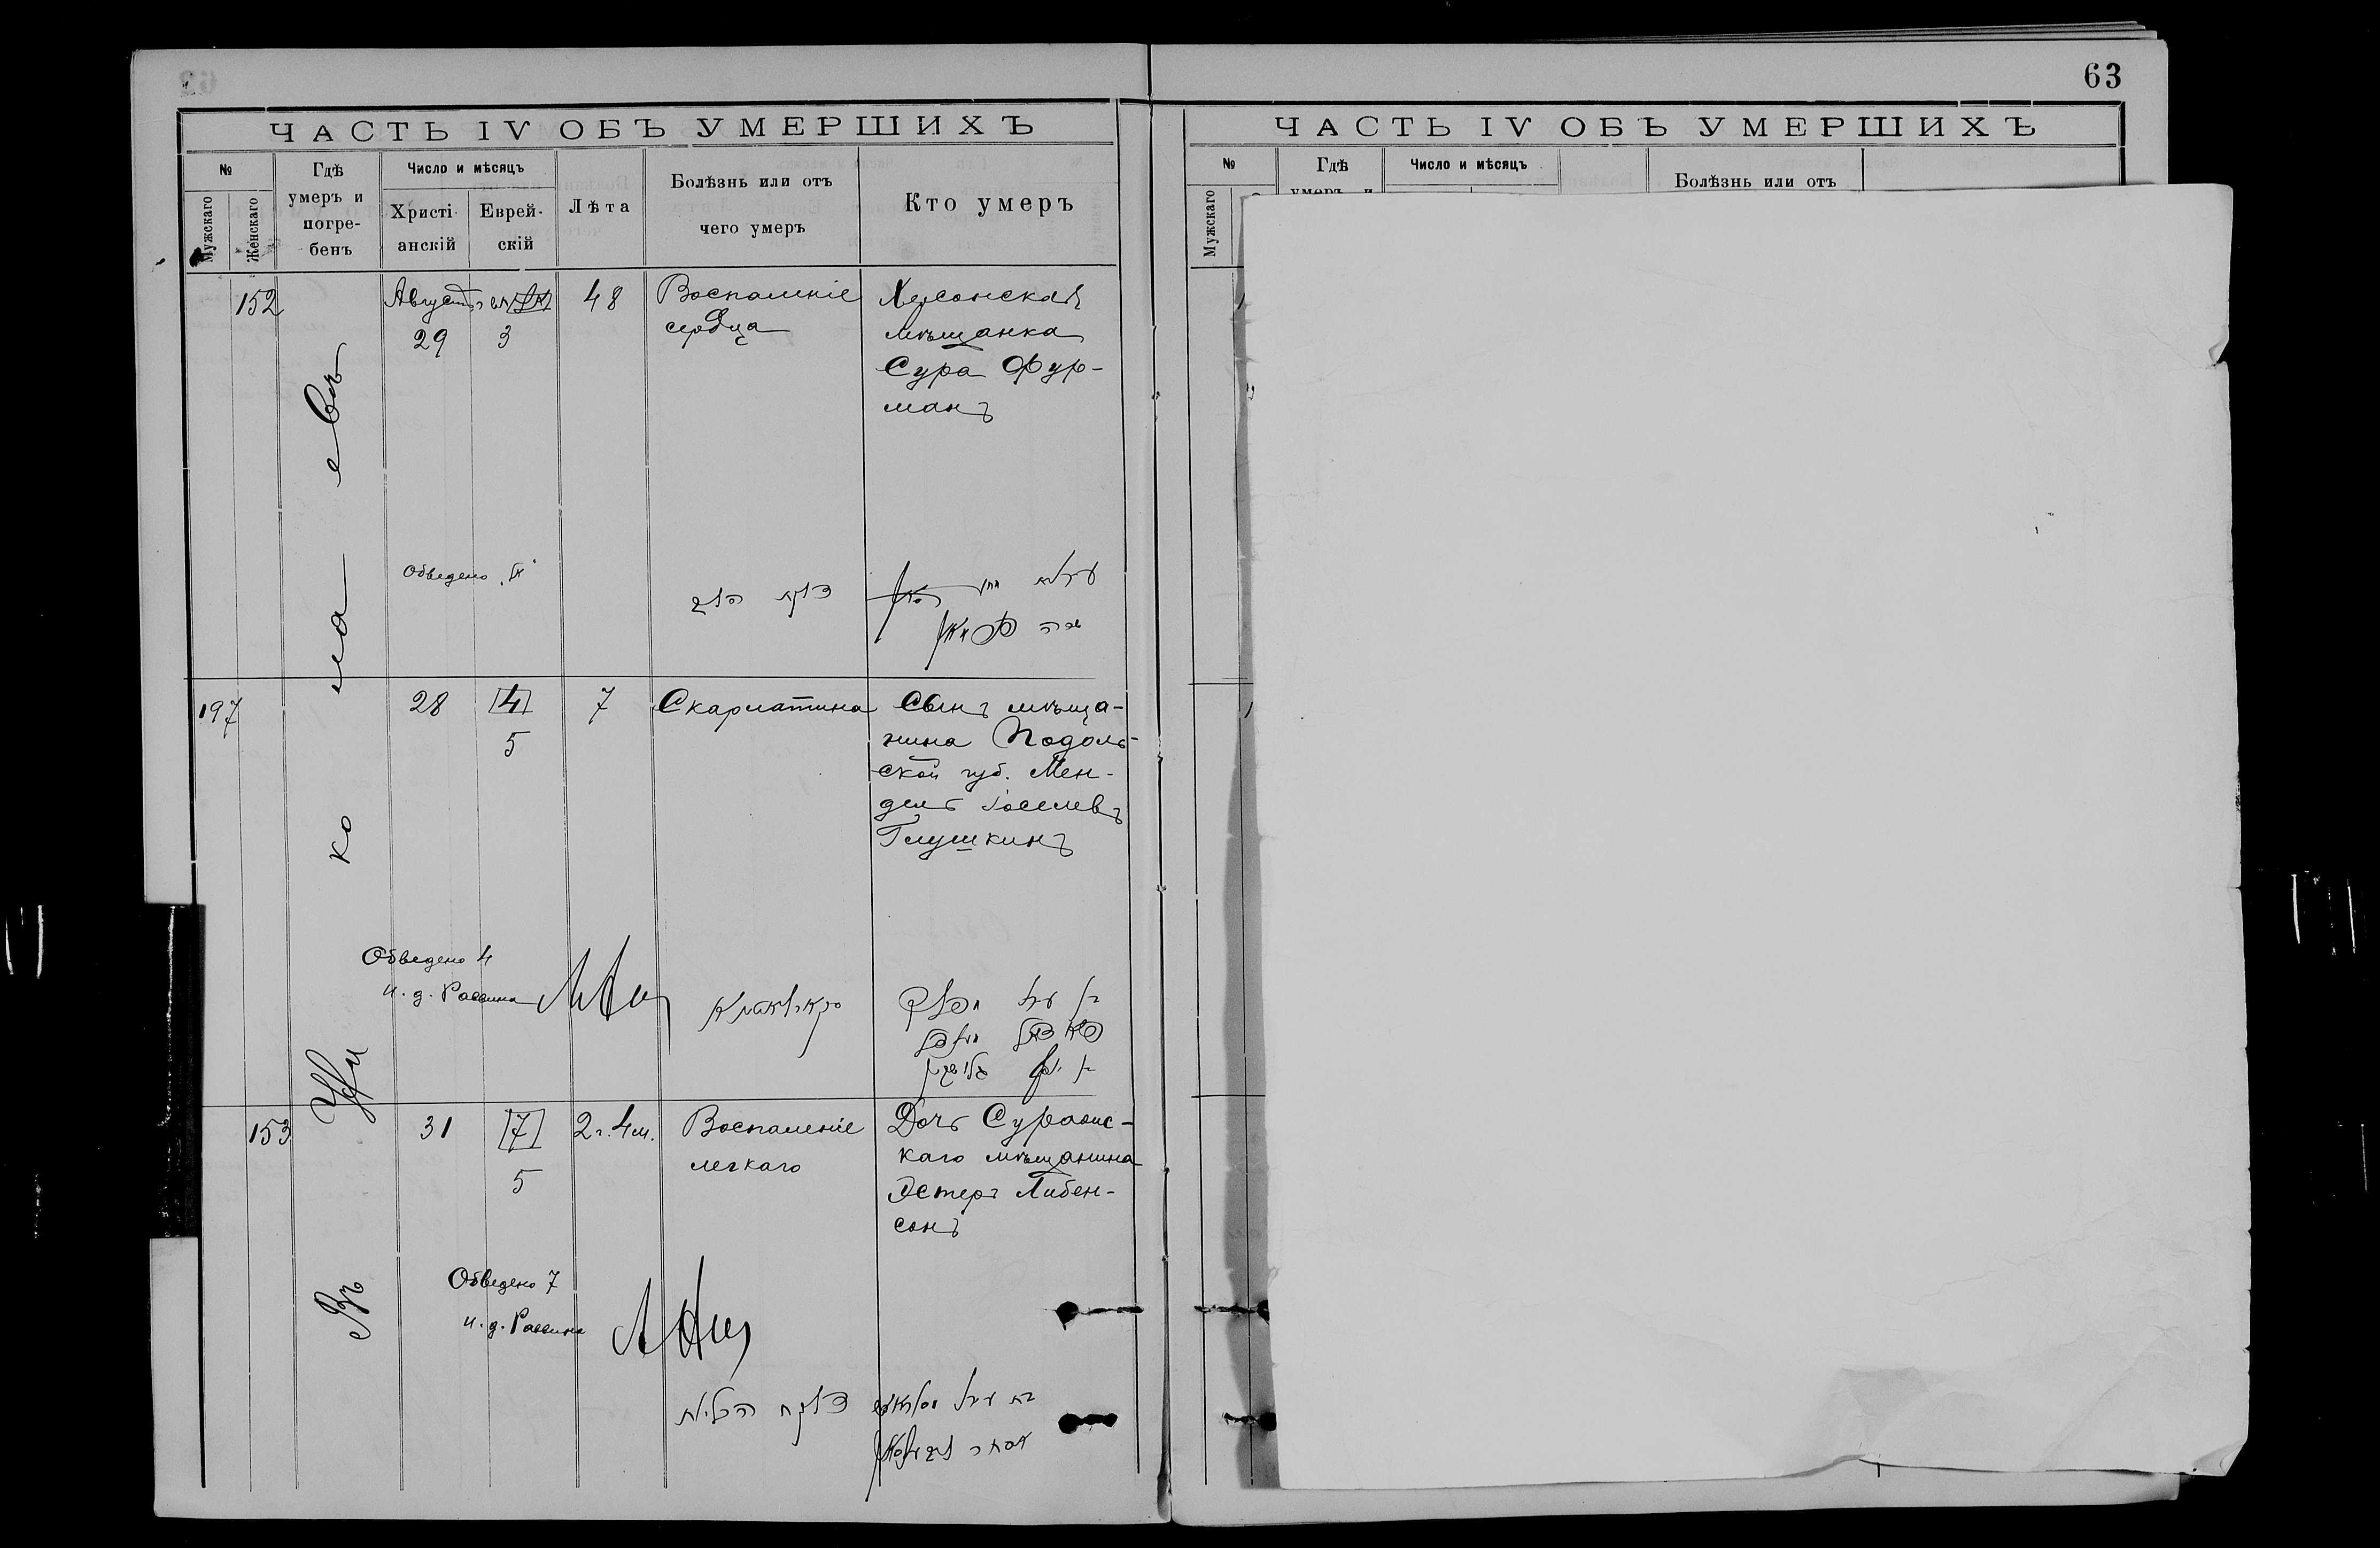 63
ЧАСТЬ IV ОБЪ УМЕРШИХЪ
№
Мужскаго
Женскаго
Гдѣ
умеръ и
погре-
бенъ
Число и мѣсяцъ
Христі-
анскій
Еврей-
скій
Лѣта
Болѣзнь или отъ
чего умеръ
Кто умеръ
Въ Николаевѣ
152
Августъ
29
3
48
Воспаленіе
сердца
Херсонская
мѣщанка
Сура Фур-
манъ
Обведено
דלקת הלב
שרה
197
28
4
5
7
Скарлатина
Сынъ мѣща-
нина Подоль-
ской губ. Мен-
дель Іоселевъ
Глушкинъ
Обведено 4
и. д. Раввина
סקארלאטינא
153
31
7
5
2 г. 4 м.
Воспаленіе
легкаго
Дочь
каго мѣщанина
Эстеръ Либен-
сонъ
Обведено 7
и. д. Раввина
דלקת הריאה
אסתר ליבענזאהן
ЧАСТЬ IV ОБЪ УМЕРШИХЪ
№
Мужскаго
Гдѣ
умеръ и
Число и мѣсяцъ
Болѣзнь или отъ